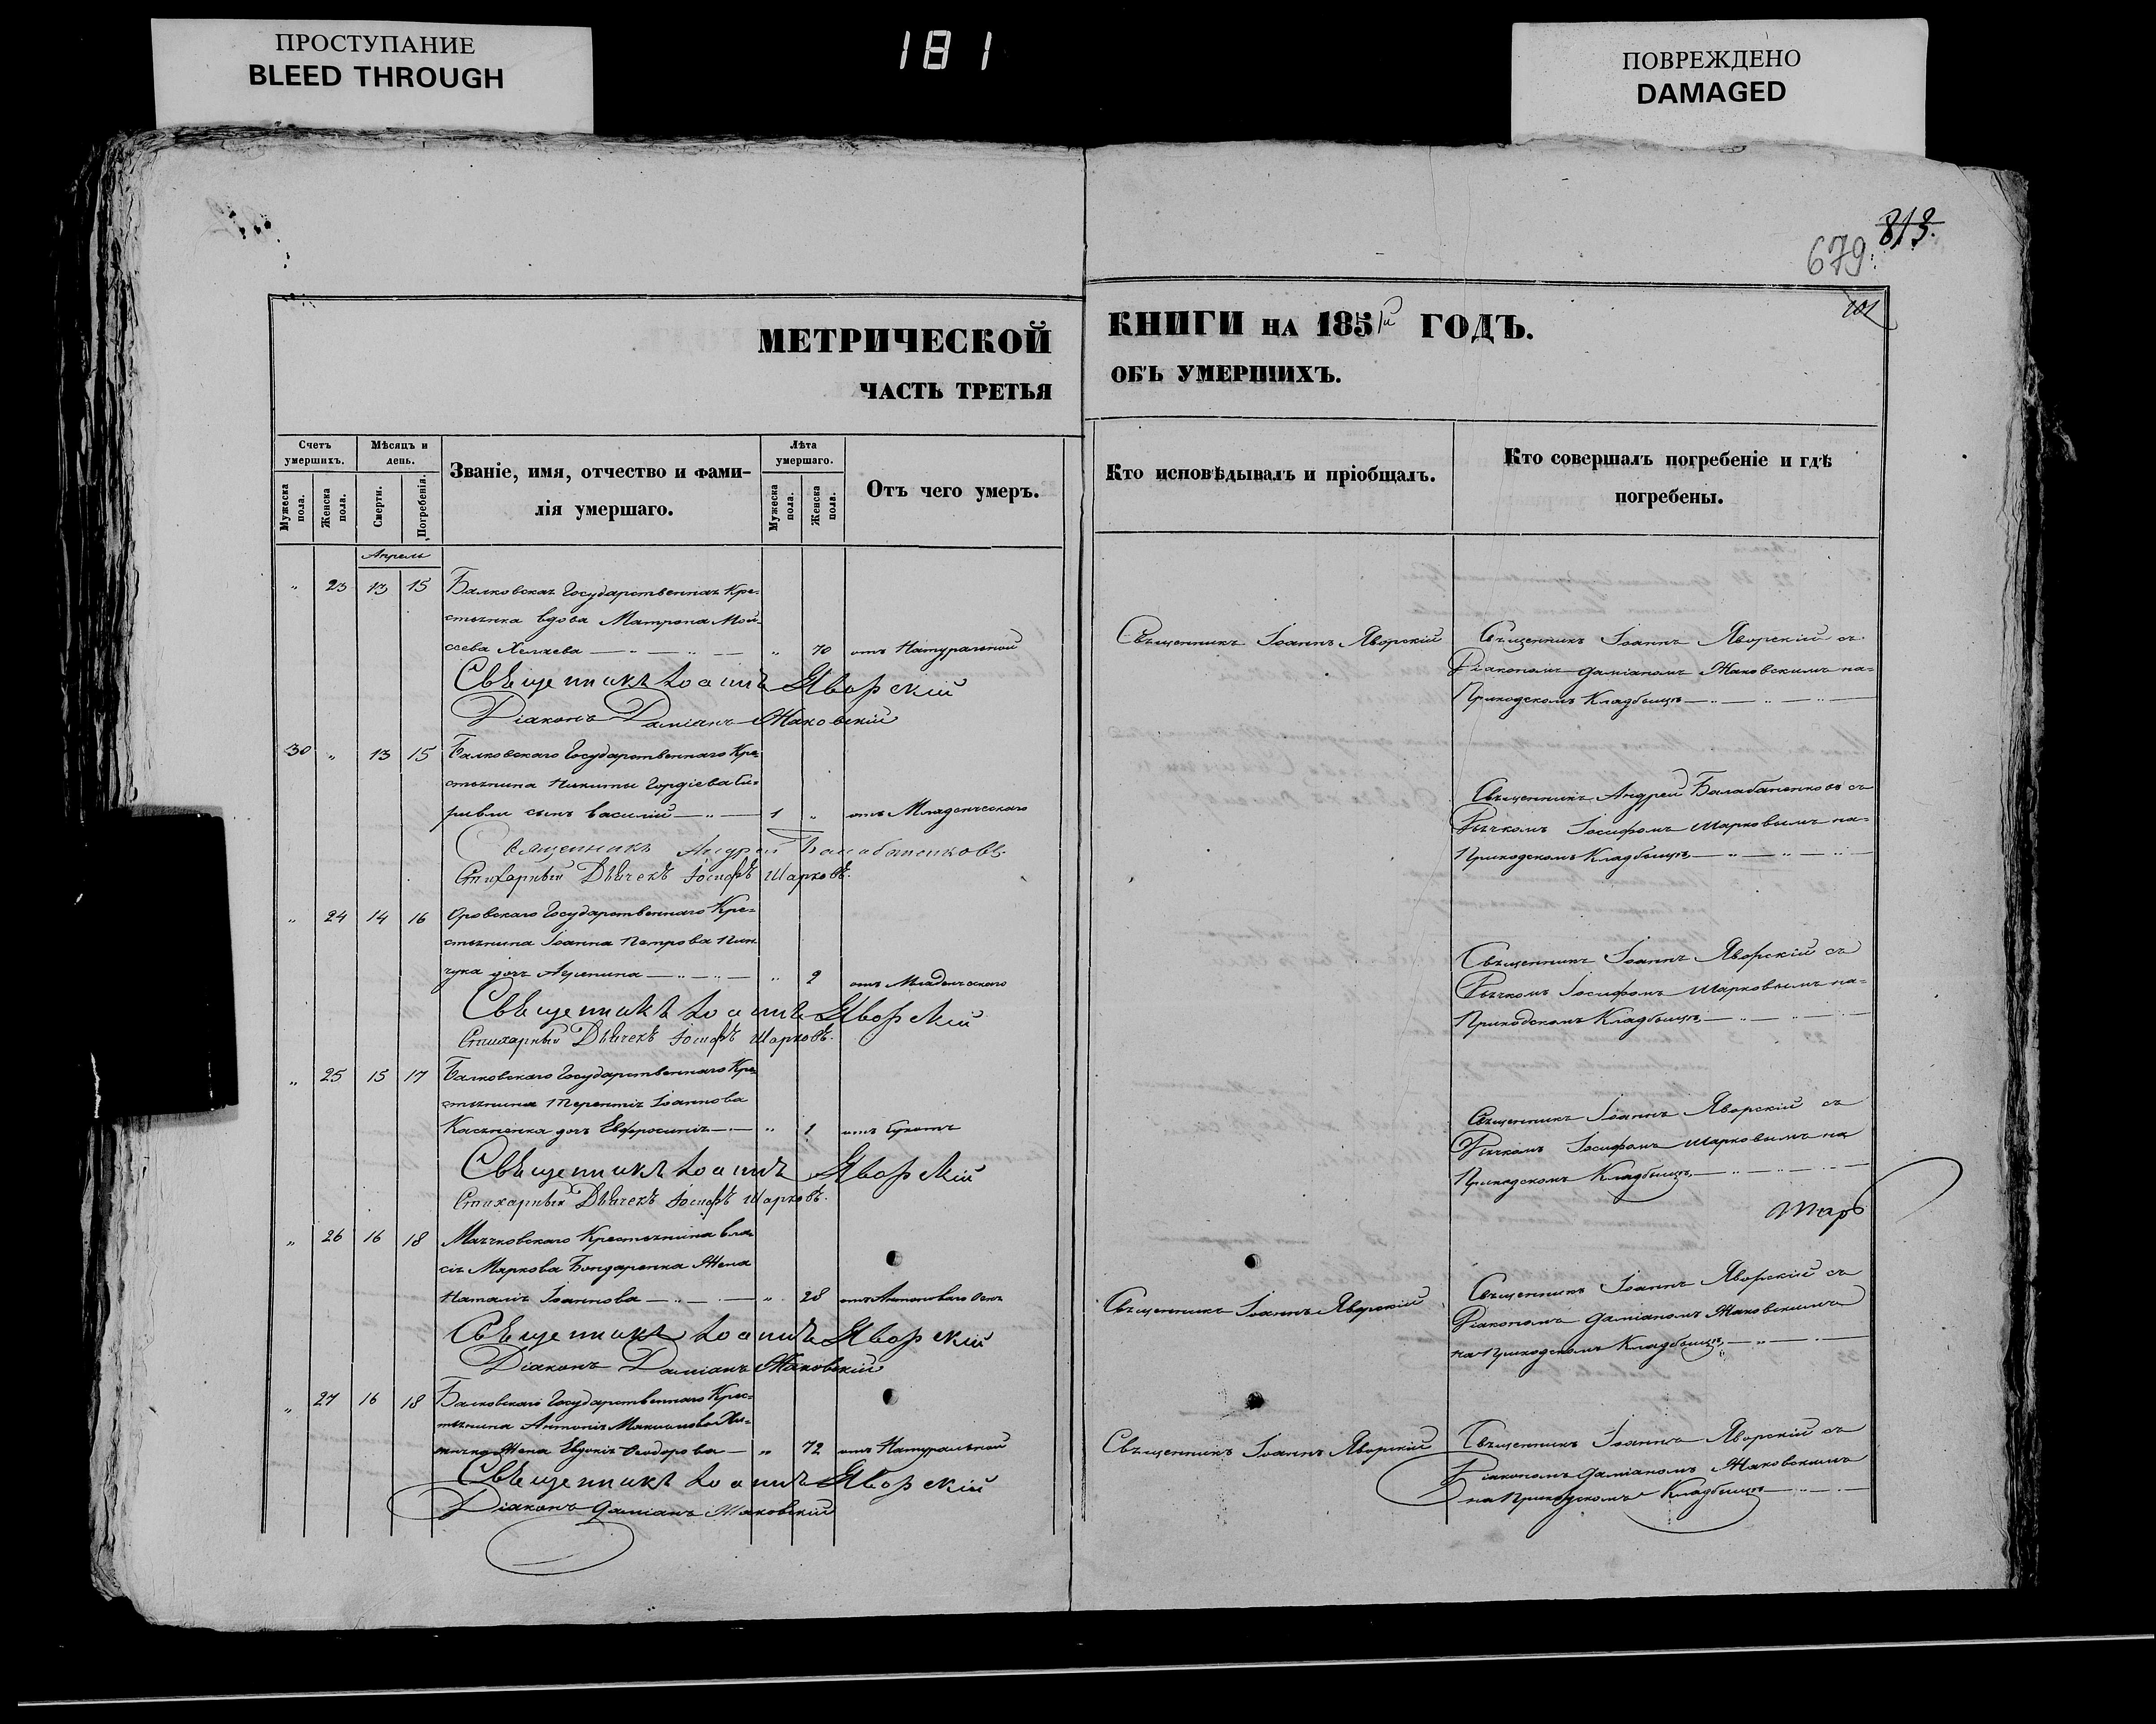 ПРОСТУПАНИЕ
BLEED THROUGH
181
ПОВРЕЖДЕНО
DAMAGED
813.
679.
МЕТРИЧЕСКОЙ
ЧАСТЬ ТРЕТЬЯ
КНИГИ НА 1851й ГОДЪ.
ОБЪ УМЕРШИХЪ.
Счетъ умершихъ.
Мужеска пола.
Женска пола.
Мѣсяцъ и день.
Смерти.
Погребенія.
Званіе, имя, отчество и фами-
лія умершаго.
Лѣта умершаго.
Мужеска пола.
Женска пола.
Отъ чего умеръ.
Кто исповѣдывалъ и пріобщалъ.
Кто совершалъ погребеніе и гдѣ
погребены.
Апрель
" 23 13 15 Балковская Государственная Кре-
стьянка вдова Матрона Мой-
сеева " 70 отъ Натуральной
Священникъ Іоаннъ Яворскій
Священникъ Іоаннъ Яворскій съ
Діакономъ Даміаномъ Жаковскимъ на-
Приходскомъ Кладбищѣ
Священикъ Іоаннъ Яворскій
Діаконъ Даміанъ Жаковскій
30 " 13 15 Балковскаго Государственнаго Кре-
стьянина Никиты Гордіева
сынъ Василій 1 " отъ Младенческаго
Священникъ Андрей Балабаненковъ съ
Дьячкомъ Іосифомъ Шарковымъ на-
Приходскомъ Кладбищѣ
Священникъ Андрей Балабаненковъ
Стихарный Дьячекъ Іосифъ Шарковъ.
" 24 14 16 Государственнаго Кре-
стьянина Іоанна Петрова
дочь " 2 отъ Младенческаго
Священникъ Іоаннъ Яворскій съ
Дьячкомъ Іосифомъ Шарковымъ на-
Приходскомъ Кладбищѣ
Священикъ Іоаннъ Яворскій
Стихарный Дьячекъ Іосифъ Шарковъ.
" 25 15 17 Балковскаго Государственнаго Кре-
стьянина Терентія Іоаннова
Касьяненка дочь Евфросинія " 1 отъ Сухотъ
Священникъ Іоаннъ Яворскій съ
Дьячкомъ Іосифомъ Шарковымъ на
Приходскомъ Кладбищѣ
Священикъ Іоаннъ Яворскій
Стихарный Дьячекъ Іосифъ Шарковъ.
" 26 16 18 Крестьянина Вла-
сія Маркова Бондаренка Жена
Наталія Іоаннова " 28
Священникъ Іоаннъ Яворскій
Священникъ Іоаннъ Яворскій съ
Діакономъ Даміаномъ Жаковскимъ
на Приходскомъ Кладбищѣ
Священикъ Іоаннъ Яворскій
Діаконъ Даміанъ Жаковскій
" 27 16 18 Балковскаго Государственнаго Крес-
тьянина Антонія
Жена Евдокія Ѳеодорова " 72 отъ Натуральной
Священникъ Іоаннъ Яворскій
Священникъ Іоаннъ Яворскій съ
Діакономъ Даміаномъ Жаковскимъ
на Приходскомъ Кладбищѣ
Священикъ Іоаннъ Яворскій
Діаконъ Даміанъ Жаковскій